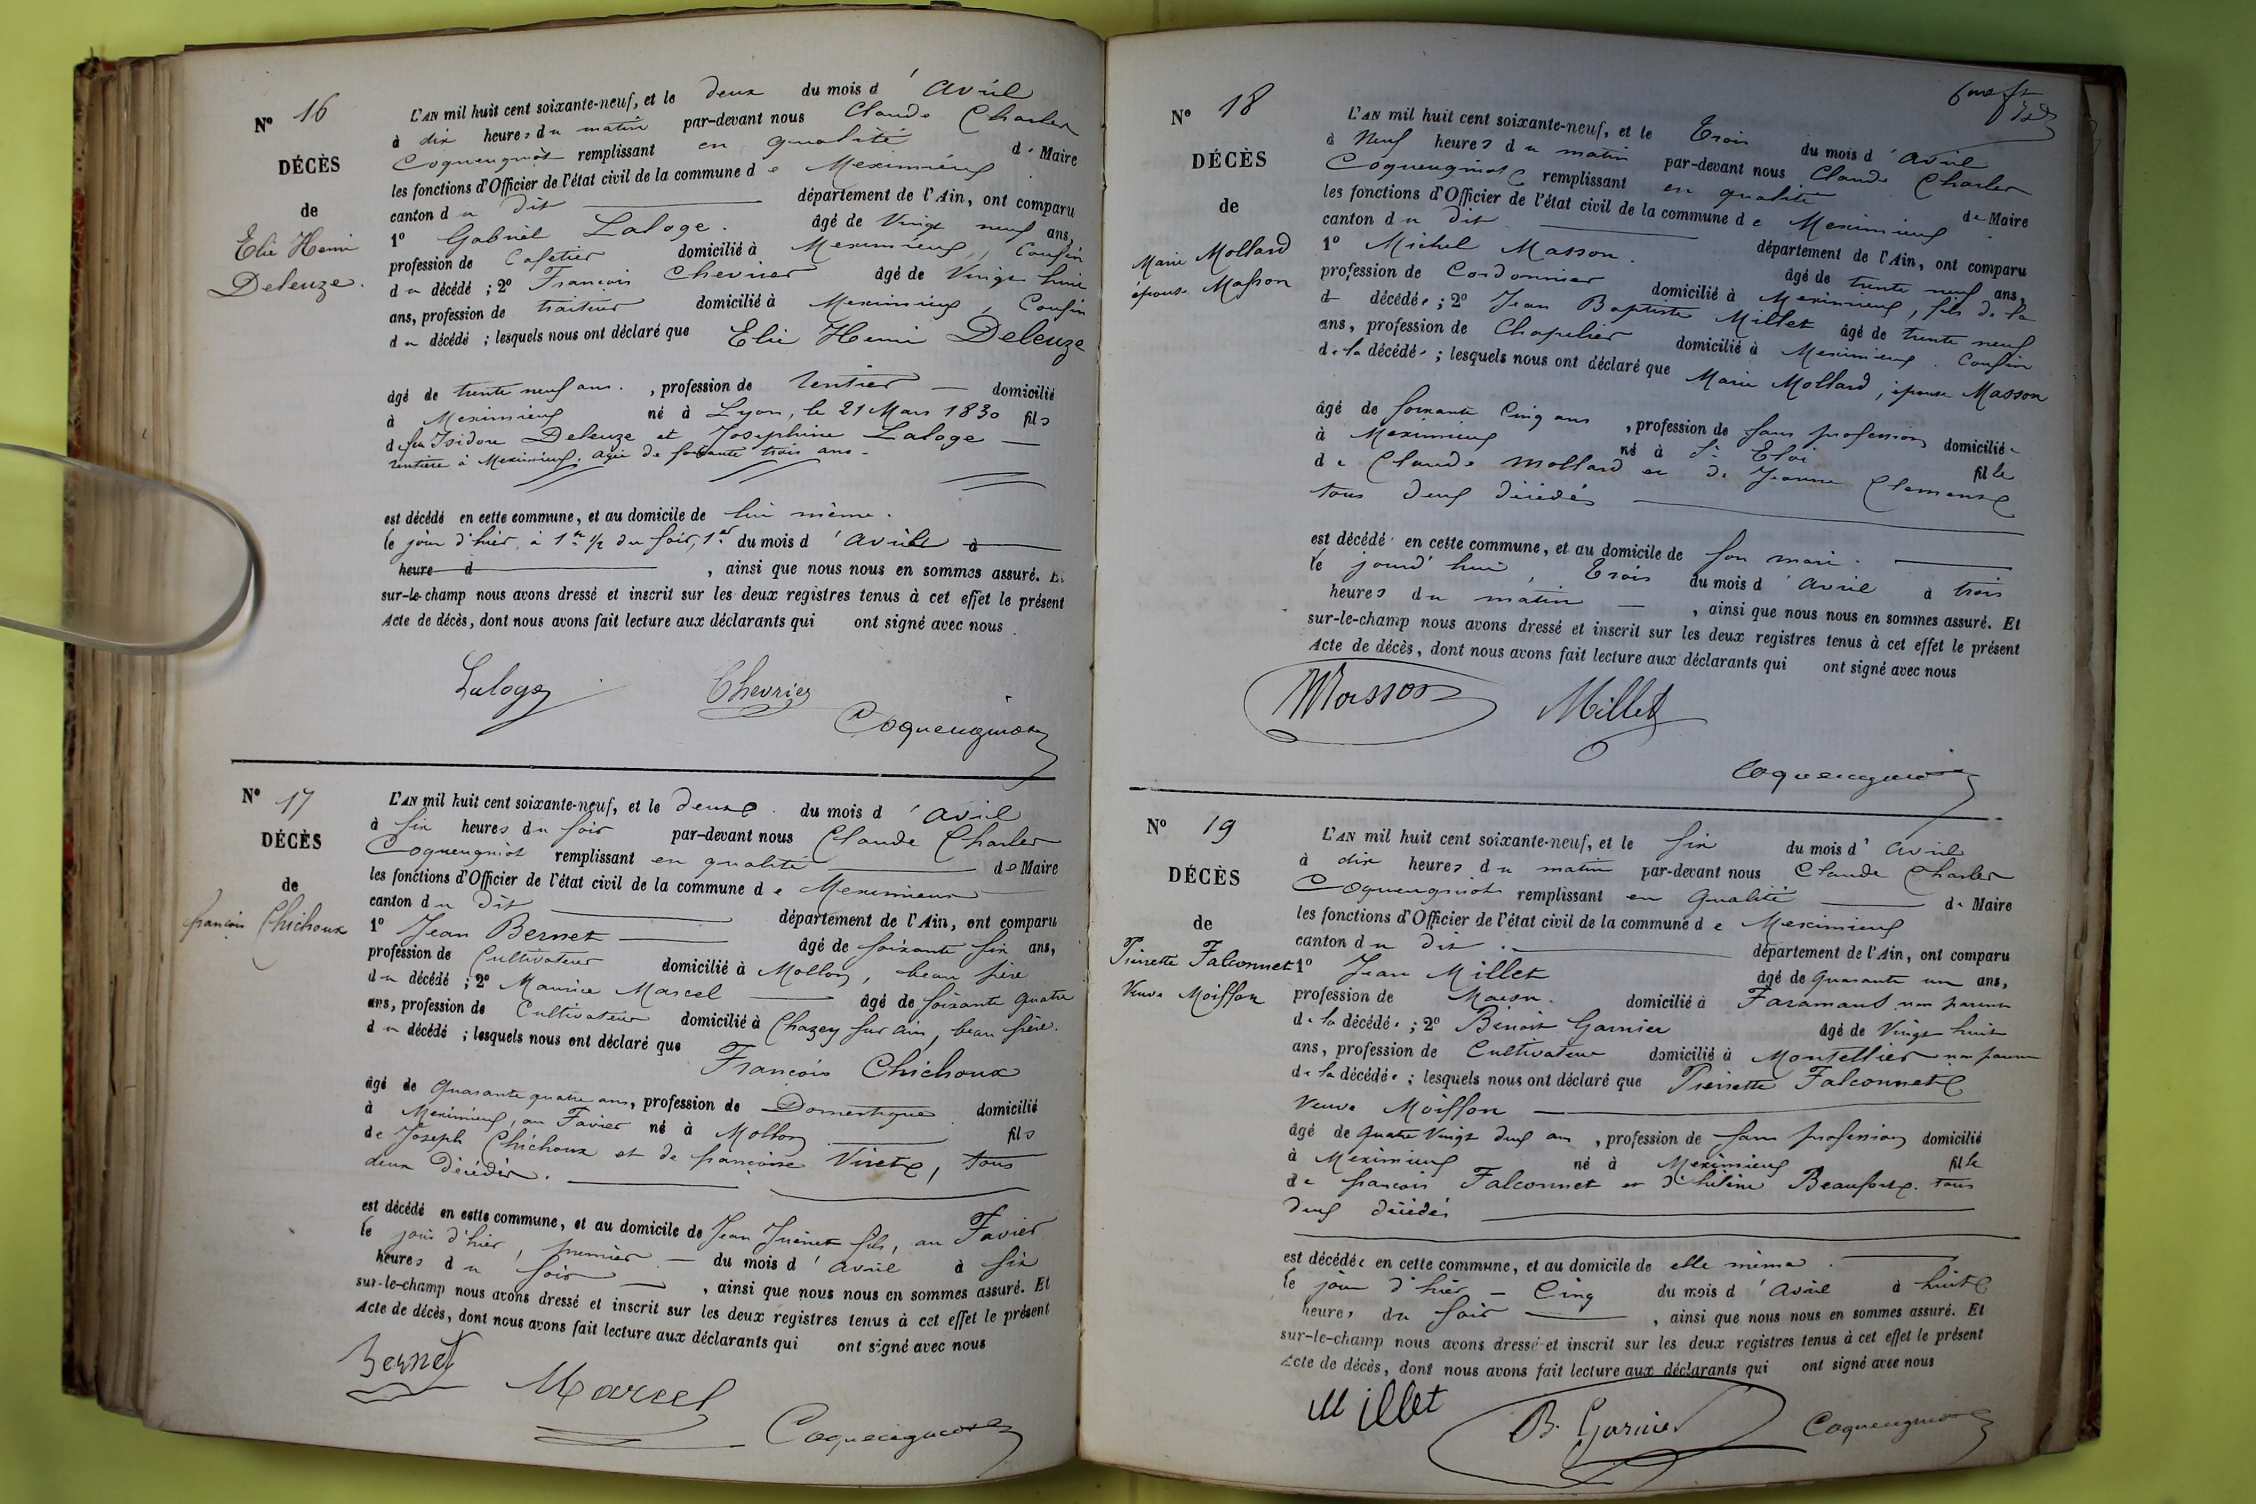 N° 16
DÉCÈS
de
Elie Henri
Deleuze.
L'AN mil huit cent soixante-neuf, et le deux du mois d'avril
à dix heures du matin par-devant nous Claude Charles
Coqueugniot remplissant en qualité de Maire
les fonctions d'Officier de l'état civil de la commune de Meximieux
canton du dit département de l'Ain, ont comparu
1° Gabriel Laloge. âgé de Vingt neuf ans,
profession de Cafetier domicilié à Meximieux, Cousin
du décédé ; 2° François Chevrier âgé de Vingt huit
ans, profession de traiteur domicilié à Meximieux, Cousin
du décédé ; lesquels nous ont déclaré que Elie Henri Deleuze
âgé de trente neuf ans. , profession de rentier domicilié
à Meximieux né à Lyon, le 21 Mars 1830 fils
de feu Isidore Deleuze et Joséphine Laloge
rentière à Meximieux, agée de soixante trois ans.
est décédé en cette commune, et au domicile de lui même.
le jour d'hier, à 1h ½ du soir, 1er du mois d'avril à
heure d , ainsi que nous nous en sommes assuré. Et
sur-le-champ nous avons dressé et inscrit sur les deux registres tenus à cet effet le présent
Acte de décès, dont nous avons fait lecture aux déclarants qui ont signé avec nous
Laloge Chevrier
Coqueugniot
N° 17
DÉCÈS
de
françois Chichoux
L'AN mil huit cent soixante-neuf, et le deux du mois d'avril
à six heures du soir par-devant nous Claude Charles
Coqueugniot remplissant en qualité de Maire
les fonctions d'Officier de l'état civil de la commune de Meximieux
canton du dit département de l'Ain, ont comparu
1° Jean Bernet âgé de soixante six ans,
profession de Cultivateur domicilié à Mollon, beau frère
du décédé ; 2° Maurice Marcel âgé de soixante quatre
ans, profession de Cultivateur domicilié à Chazey sur ain, beau frère.
du décédé ; lesquels nous ont déclaré que François Chichoux
âgé de quarante quatre ans, profession de Domestique domicilié
à Meximieux, au Favier né à Mollon fils
de Joseph Chichoux et de françoise Viret, tous
deux décédés.
est décédé en cette commune, et au domicile de Jean Juénet fils, au Favier
le jour d'hier, premier du mois d'avril à six
heures du soir , ainsi que nous nous en sommes assuré. Et
sur-le-champ nous avons dressé et inscrit sur les deux registres tenus à cet effet le présent
Acte de décès, dont nous avons fait lecture aux déclarants qui ont signé avec nous
Bernet Marcel
Coqueugniot
N° 18
DÉCÈS
de
Marie Mollard
épouse Masson
L'AN mil huit cent soixante-neuf, et le Trois du mois d'avril
à Neuf heures du matin par-devant nous Claude Charles
Coqueugniot remplissant en qualité de Maire
les fonctions d'Officier de l'état civil de la commune de Meximieux
canton du dit département de l'Ain, ont comparu
1° Michel Masson. âgé de trente neuf ans,
profession de Cordonnier domicilié à Meximieux, fils de la
d décédée ; 2° Jean Baptiste Millet âgé de trente neuf
ans, profession de Chapelier domicilié à Meximieux. Cousin
de la décédée ; lesquels nous ont déclaré que Marie Mollard, épouse Masson
âgé de soixante Cinq ans , profession de sans profession domiciliée
à Meximieux né à St Eloi fille
de Claude Mollard et de Jeanne Clement
tous deux décédés
est décédé en cette commune, et au domicile de son mari.
le jourd'hui, Trois du mois d'avril à trois
heures du matin , ainsi que nous nous en sommes assuré. Et
sur-le-champ nous avons dressé et inscrit sur les deux registres tenus à cet effet le présent
Acte de décès, dont nous avons fait lecture aux déclarants qui ont signé avec nous
Masson Millet
Coqueugniot
N° 19
DÉCÈS
de
Pierrette Falconnet
Veuve Moisson
L'AN mil huit cent soixante-neuf, et le six du mois d'avril
à dix heures du matin par-devant nous Claude Charles
Coqueugniot remplissant en qualité de Maire
les fonctions d'Officier de l'état civil de la commune de Meximieux
canton du dit département de l'Ain, ont comparu
1° Jean Millet âgé de quarante un ans,
profession de Maçon. domicilié à Faramans non parent
de la décédée ; 2° Benoit Garnier âgé de Vingt huit
ans, profession de Cultivateur domicilié à Montellier non parent
de la décédée ; lesquels nous ont déclaré que Pierrette Falconnet
Veuve Moisson
âgé de quatre Vingt deux ans , profession de sans profession domicilié
à Meximieux né à Meximieux fille
de françois Falconnet et d'hélène Beaufort. tous
deux décédés
est décédée en cette commune, et au domicile de elle même.
le jour d'hier Cinq du mois d'avril à huit
heures du soir , ainsi que nous nous en sommes assuré. Et
sur-le-champ nous avons dressé et inscrit sur les deux registres tenus à cet effet le présent
Acte de décès, dont nous avons fait lecture aux déclarants qui ont signé avec nous
Millet B. Garnier Coqueugniot